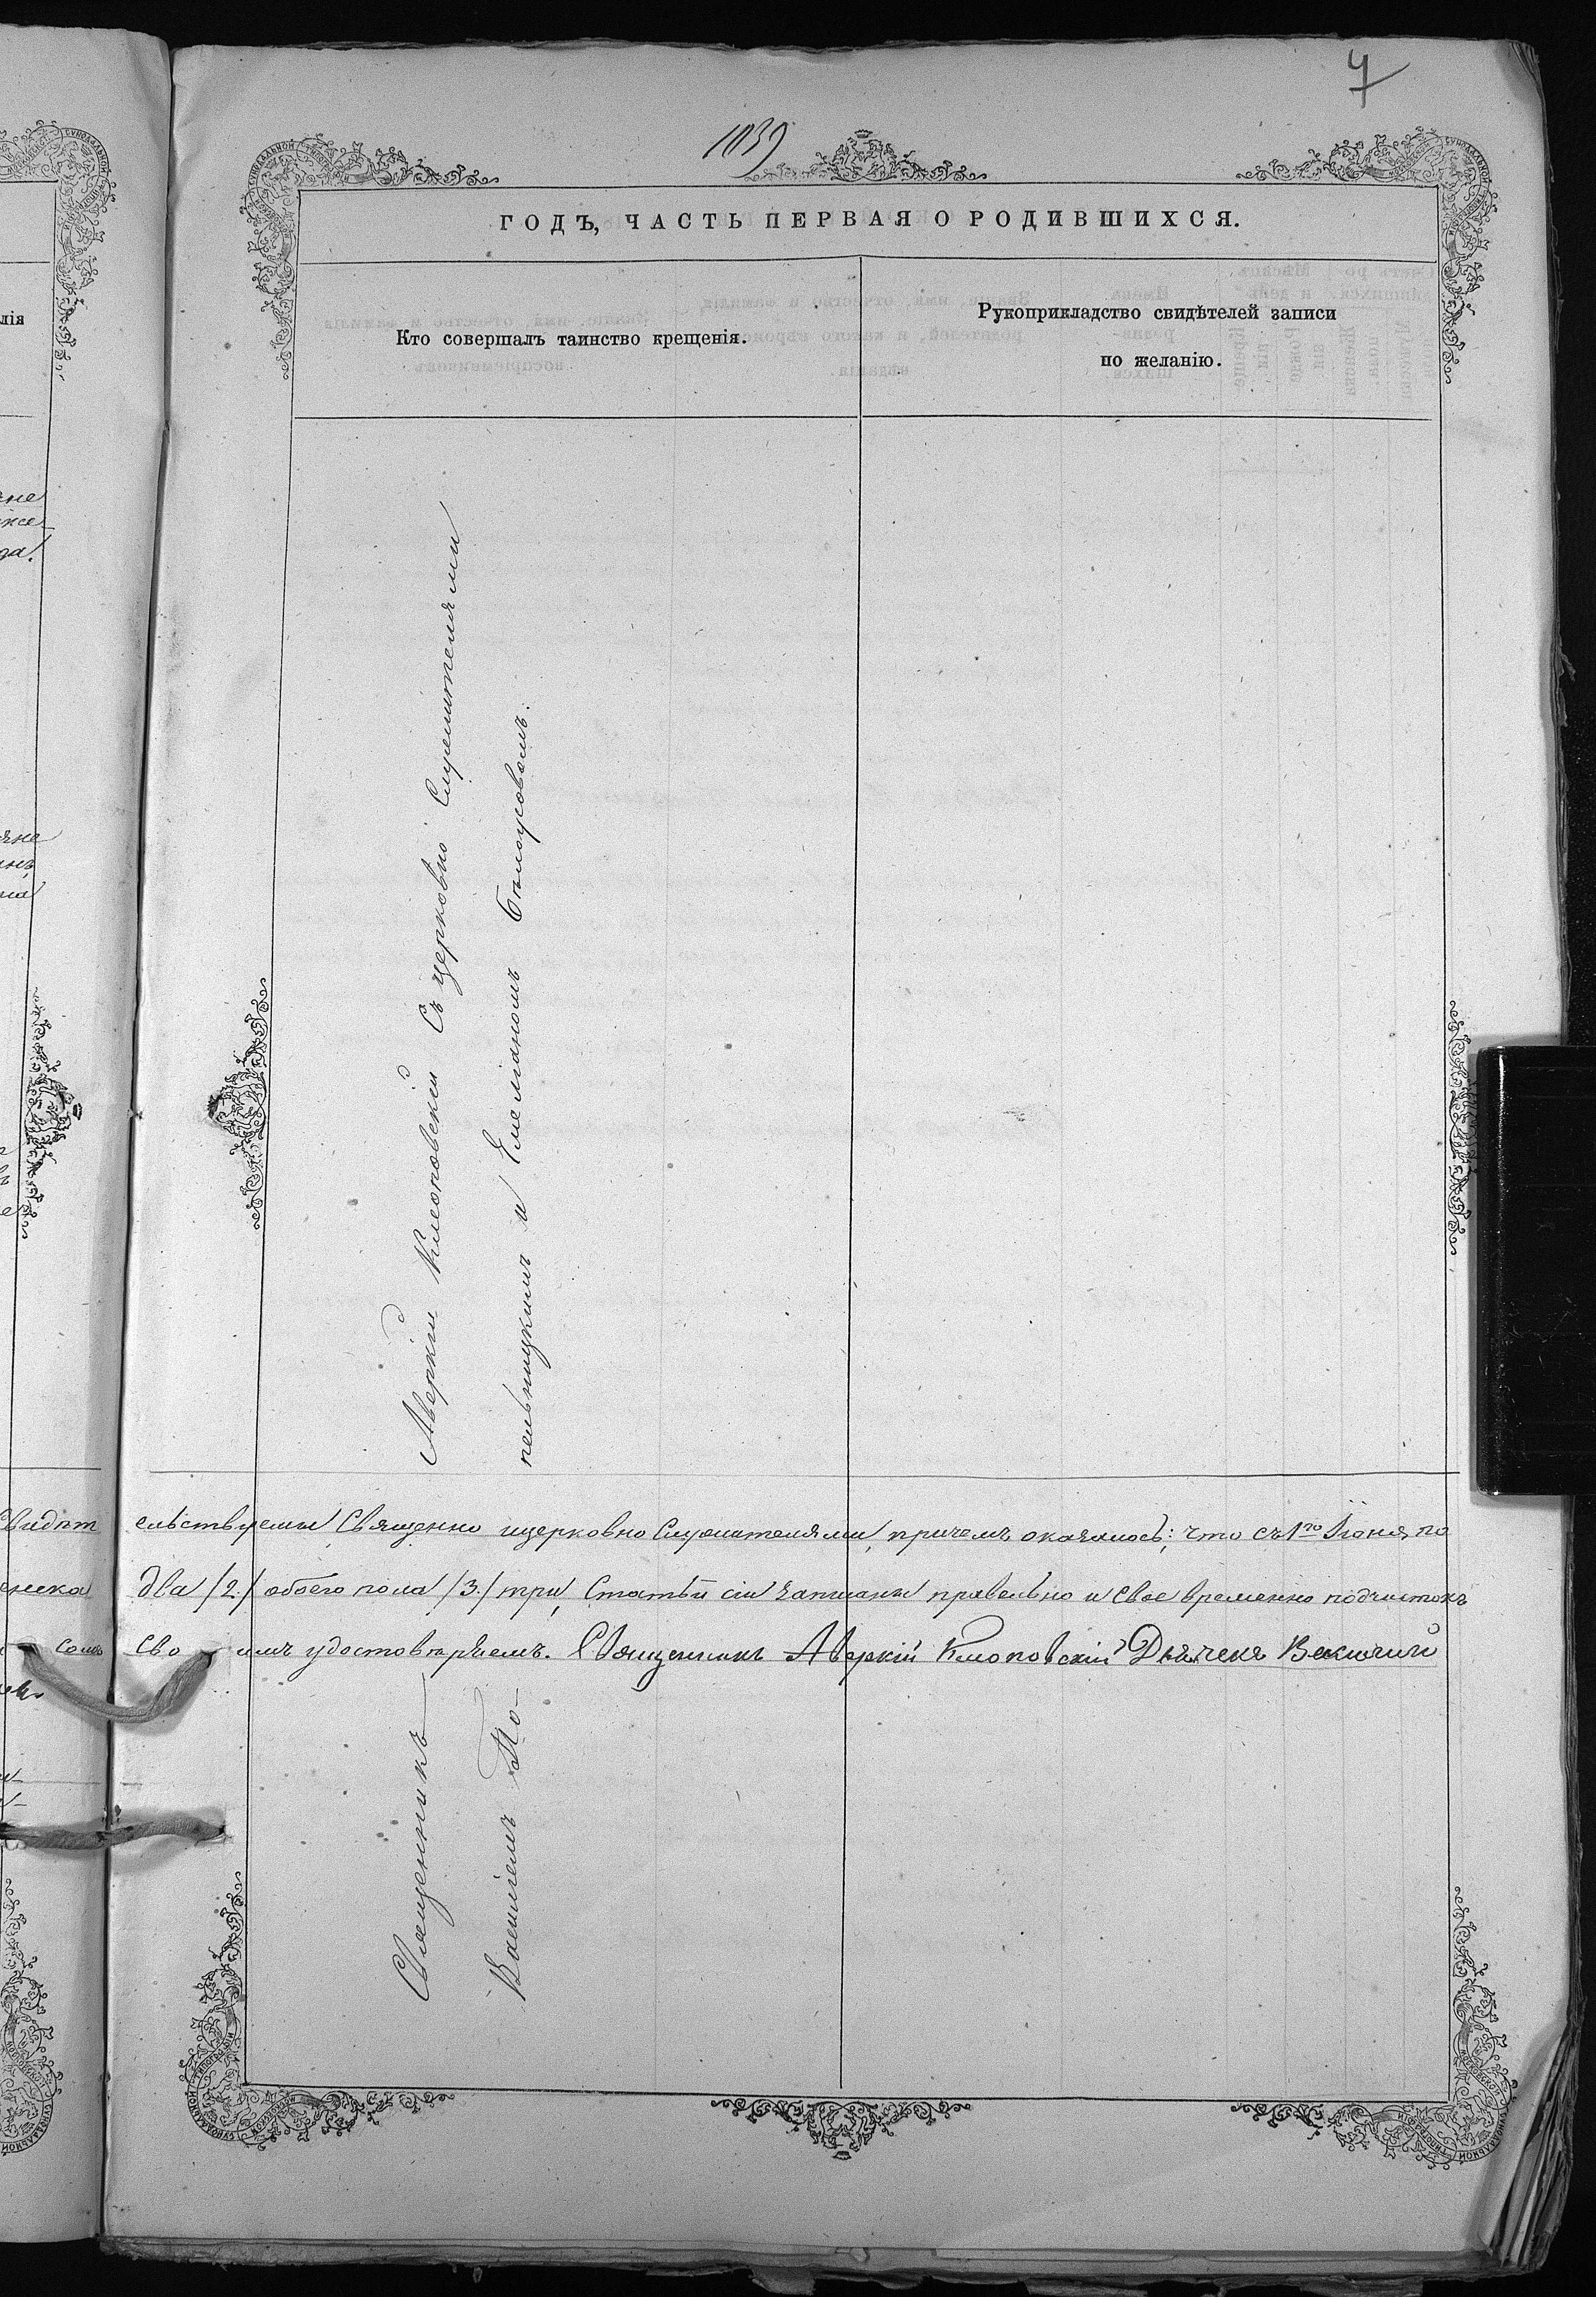 7
1039
ГОДЪ, ЧАСТЬ ПЕРВАЯ О РОДИВШИХСЯ.
Кто совершалъ таинство крещенія.
Рукоприкладство свидѣтелей записи
по желанію.
Священникъ Аверкій Клоповскій Съ церковно Служителями
Василіемъ По-
пельницкимъ и Емеліаномъ Бѣлоусовымъ.
свидѣт ельствуемы Священно ицерковно Служителями, причемъ оказалось: что съ 1го Іюня по
два /2/ обоего пола /3/ три, Статьи сіи записаны правельно и свое временно подчистокъ
сво имъ удостовѣряемъ. Священникъ Аверкій Клоповскій Дьячекъ